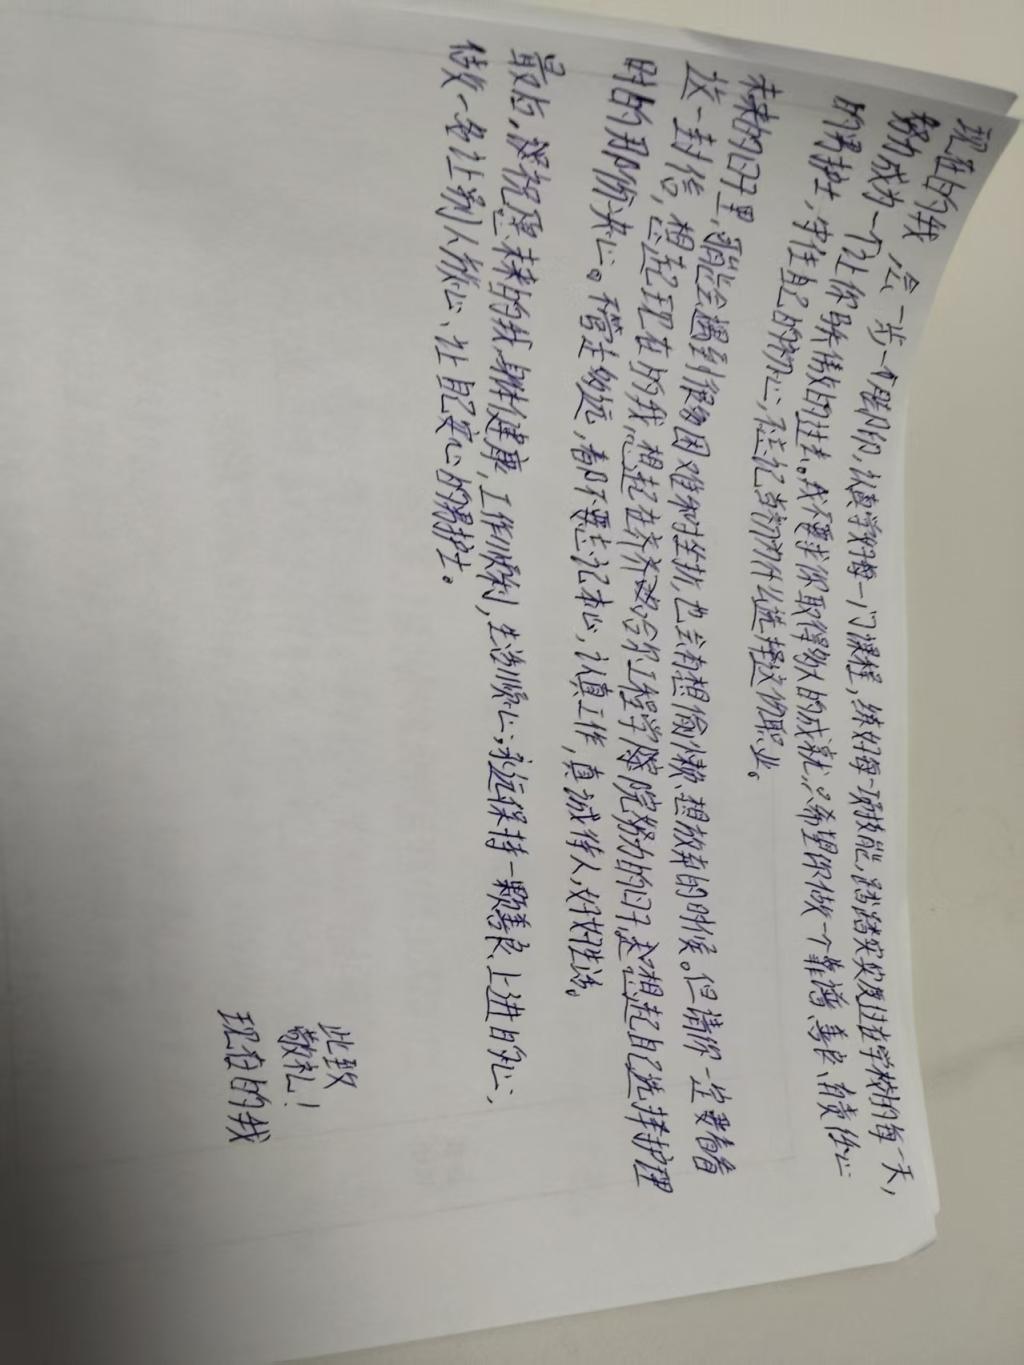 现在的我 会一步一个脚印，认真学好每一门课程，练好每一项技能，踏踏实实度过在学校的每一天，
努力成为一个让你骄傲的过去。我不要求你取得多大的成就，只希望你做一个靠谱、善良、有责任心
的男护士，守住自己的初心，不忘记当初为什么选择这份职业。
未来的日子里，可能会遇到很多困难和挫折，也会有想偷懒、想放弃的时候。但请你一定要看看
这一封信，想起现在的我，想起在齐齐哈尔工程学院努力的日子，想起自己选择护理
时的那份决心。不管走多远，都不要忘记本心，认真工作，真诚待人，好好生活。
最后，深祝愿未来的我，身体健康，工作顺利，生活顺心，永远保持一颗善良、上进的心，
做一名让别人放心、让自己安心的男护士。
此致
敬礼！
现在的我